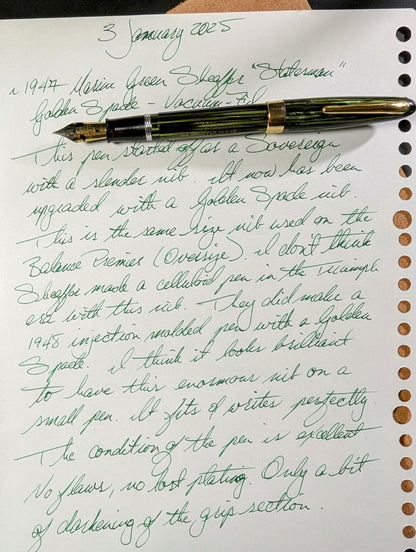 3 January 2025
~ 1947 Marine Green Sheaffer "Statesman"
Golden Spade - Vacuum-Fil
This pen started off as a Sovereign
with a slender nib. It now has been
upgraded with a Golden Spade nib.
This is the same size nib used on the
Balance Premier (Oversize). I don't think
Sheaffer made a celluloid pen in the Triumph
era with this nib. They did make a
1948 injection molded pen with a Golden
Spade. I think it looks brilliant
to have this enormous nib on a
small pen. It fits & writes perfectly
The condition of the pen is excellent
No flaws, no lost plating. Only a bit
of darkening of the grip section.